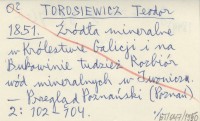 TOROSIEWICZ Teodor
1851. Źródła mineralne
w Królestwie Galicji i na
Bukowinie tudzież Rozbiór
wód mineralnych w Iwoniczu.
— Przegląd Poznański (Poznań)
2: 102-104.